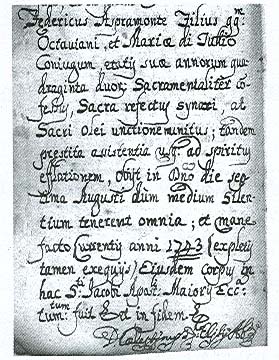 Federicus Aspramonte Filius qq.m
Octaviani, et Mariæ di Iudio
Coniugum, etatis suæ annorum qua
draginta duor; Sacramentaliter co
fessus, Sacra refectus synaxi, at
Sacri Olei unctione munitus; tandem
prestita assistentia usq; ad spiritus
efflationem, obijt in Dno die sep
tima Augusti dùm medium silen
tium tenerent omnia; et mane
facto Currentis anni 1743 (expletis
tamen exequijs) Eiusdem corpus in
hac Sti Jacobi Apost: Maioris Ecca
tum: tum fuit Et in fidem